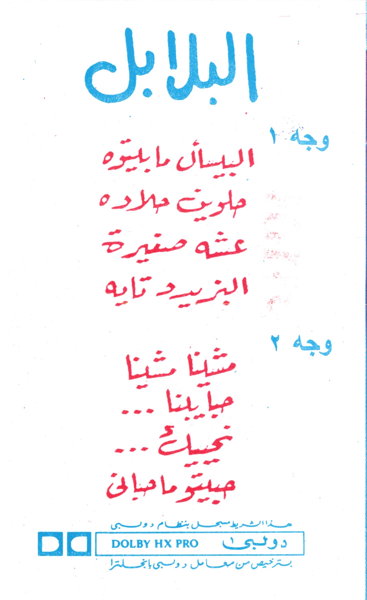 البلابل
وجه ١
البيسأل ما بيتوه
حلوين حلاده
عشه صغيرة
البزيد تايه
وجه ٢
مشينا مشينا
حبايبنا ...
نجييك ...
حبيتو ما حباني
هذا الشريط سجل بنظام دولبي
DOLBY HX PRO دولبي
بترخيص من معامل دولبي بانجلترا